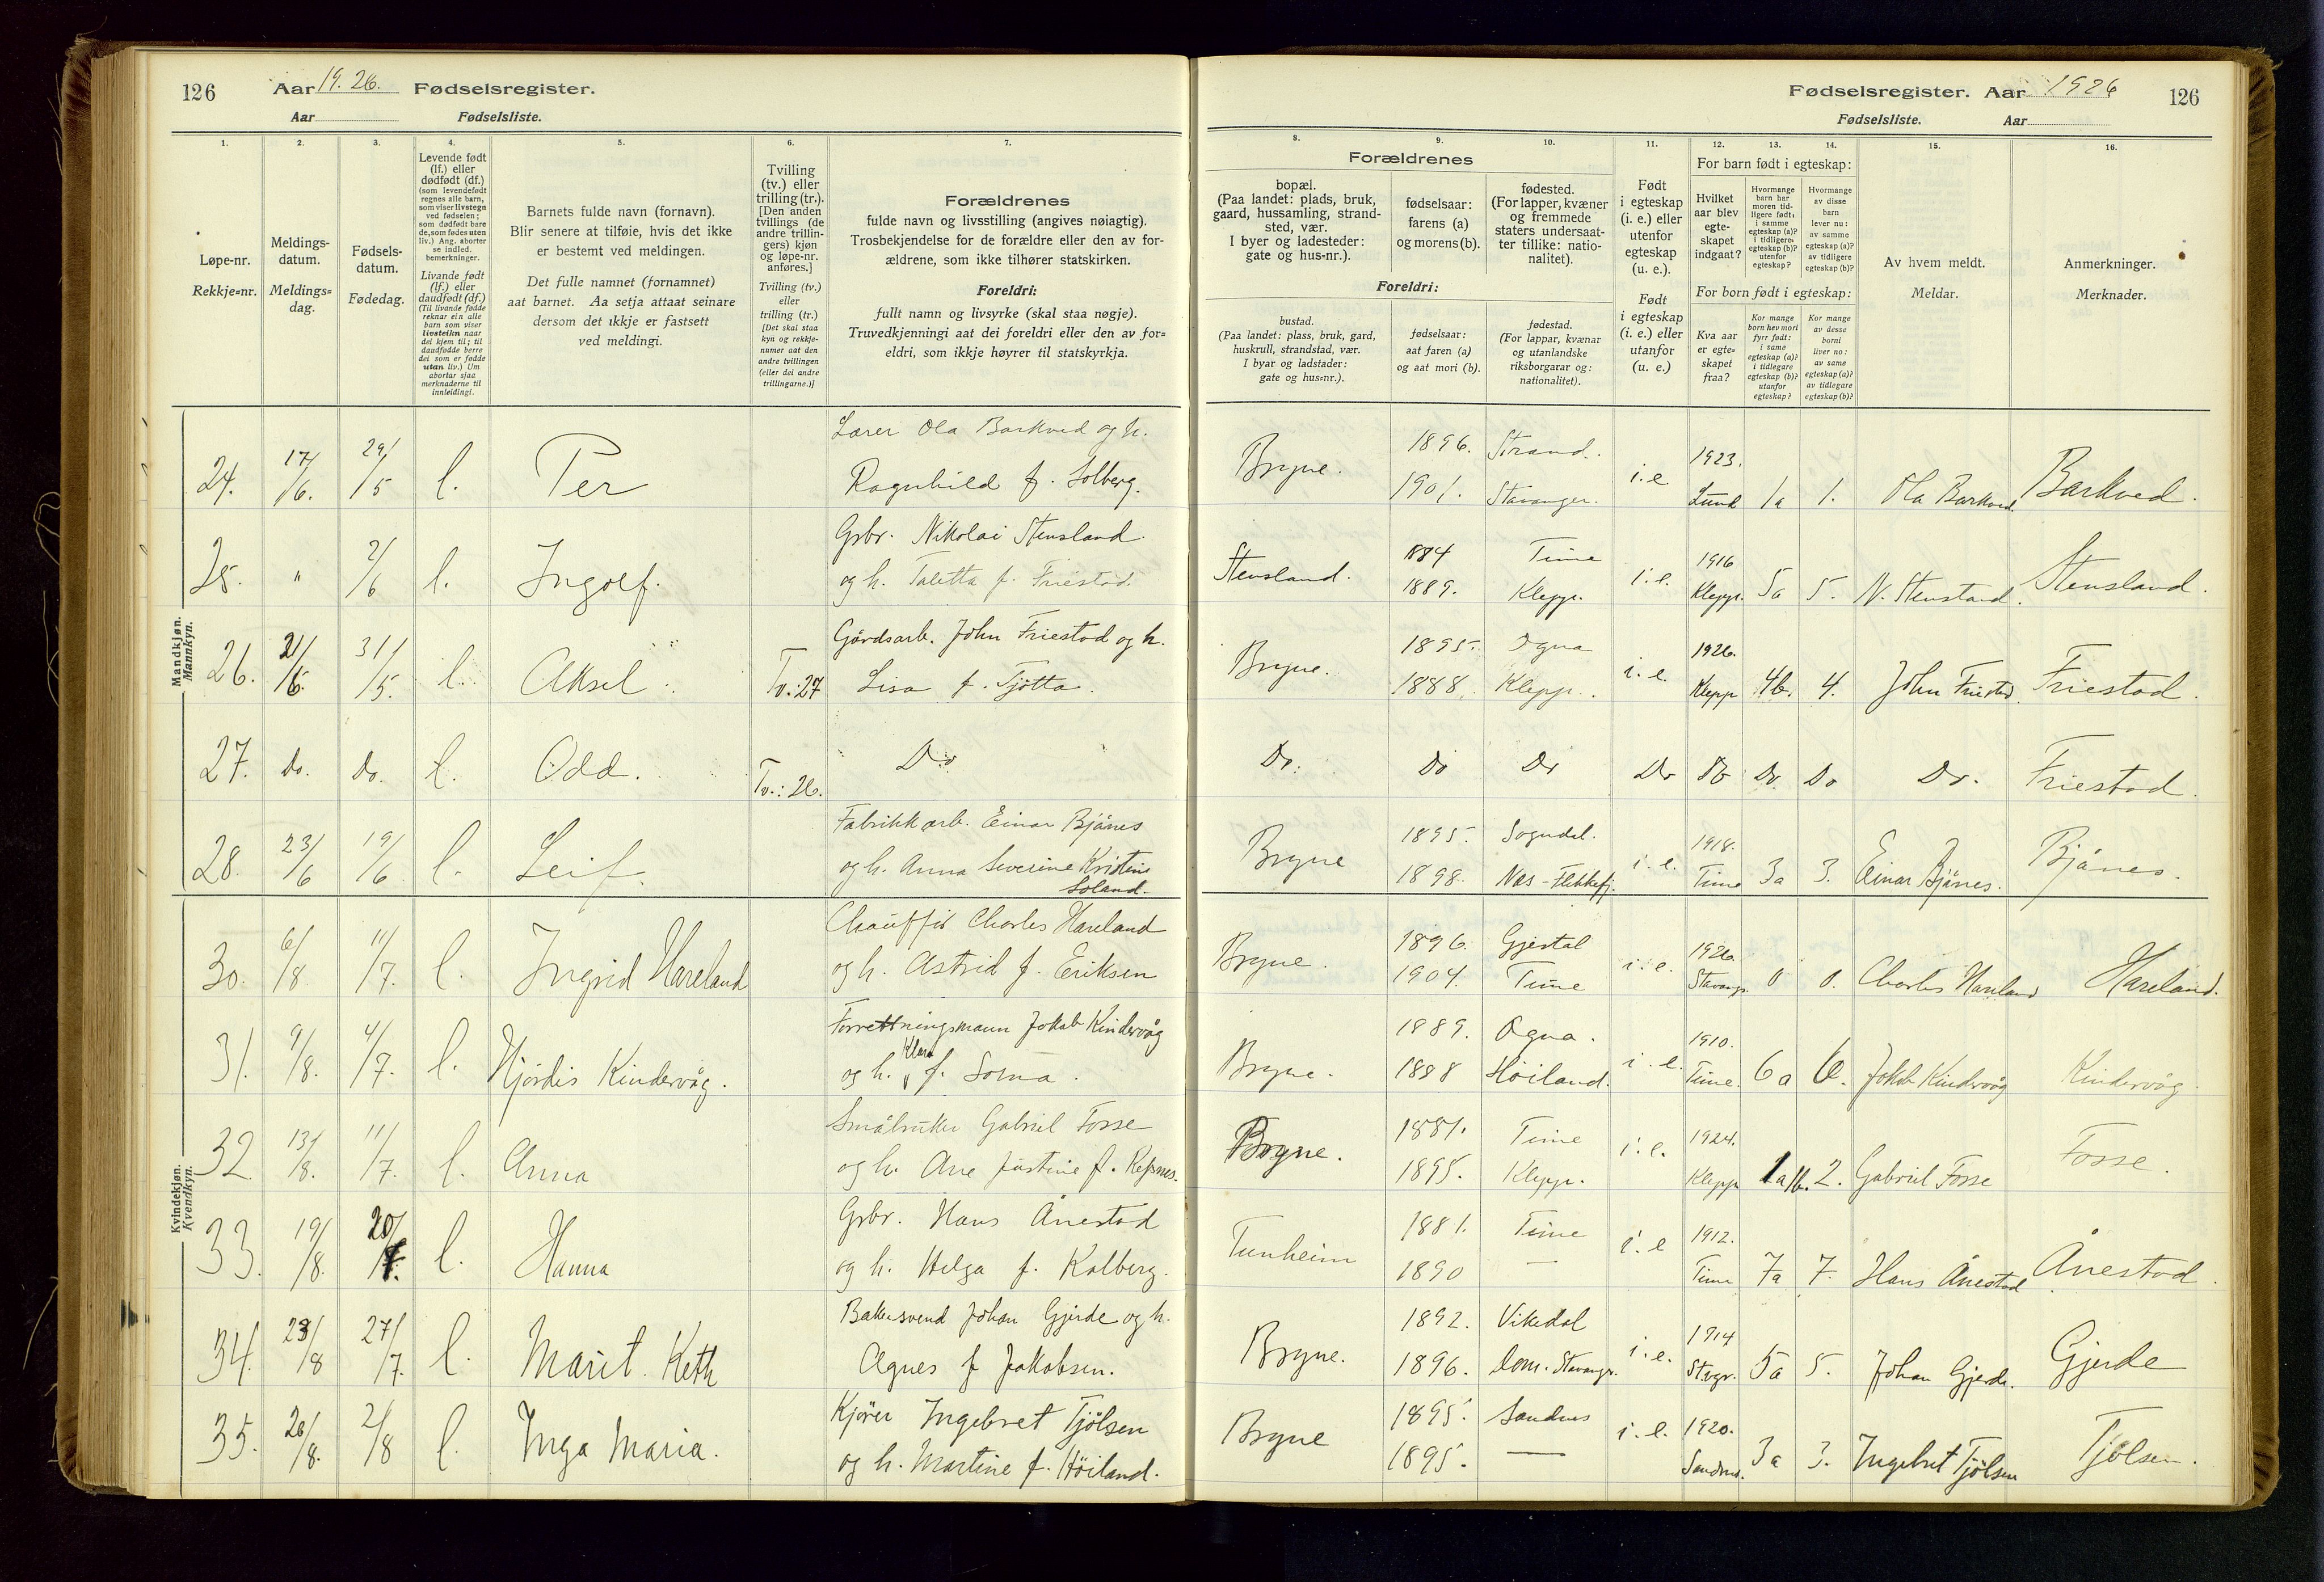 126 Aar 19.26. Fødselsregister.
Aar Fødselsliste.
Fødselsregister. Aar 1926 126
Fødselsliste. Aar
1. 2. 3. 4. 5. 6. 7.
Løpe-nr.
Rekkje-nr.
Meldings-
datum.
Meldings-
dag.
Fødsels-
datum.
Fødedag.
Levende født
(lf.) eller
dødfødt (df.)
(som levendefødt
regnes alle barn,
som viser livstegn
ved fødselen;
som dødfødt bare
de, som fødes uten
liv.) Ang. aborter
se indled.
bemerkninger.
Livande født
(lf.) eller
daudfødt (df.)
(Til livande fødde
reknar ein alle
barn som viser
livsteikn naar
dei kjem til; til
daudfødde berre
dei som er fødde
utan liv.) Um
abortar sjaa
merknaderne til
innleidingi.
Barnets fulde navn (fornavn).
Blir senere at tilføie, hvis det ikke
er bestemt ved meldingen.
Det fulle namnet (fornamnet)
aat barnet. Aa setja attaat seinare
dersom det ikkje er fastsett
ved meldingi.
Tvilling
(tv.) eller
trilling (tr.).
[Den anden
tvillings (de
andre trillin-
gers) kjøn
og løpe-nr.
anføres.]
Tvilling (tv.)
eller
trilling (tr.)
[Det skal staa
kyn og rekkje-
numer aat den
andre tvillingen
(eller dei andre
trillingarne.)]
Forældrenes
fulde navn og livsstilling (angives nøiagtig).
Trosbekjendelse for de forældre eller den av for-
ældrene, som ikke tilhører statskirken.
Foreldri:
fullt namn og livsyrke (skal staa nøgje).
Truvedkjenningi aat dei foreldri eller den av for-
eldri, som ikkje høyrer til statskyrkja.
8. 9. 10. 11. 12. 13. 14. 15. 16.
Forældrenes
bopæl.
(Paa landet: plads, bruk,
gaard, hussamling, strand-
sted, vær.
I byer og ladesteder:
gate og hus-nr.).
fødselsaar:
farens (a)
og morens (b).
fødested.
(For lapper, kvæner
og fremmede
staters undersaat-
ter tillike: natio-
nalitet).
Foreldri:
bustad.
(Paa landet: plass, bruk, gard,
huskrull, strandstad, vær.
I byar og ladstader:
gate og hus-nr.).
fødselsaar:
aat faren (a)
og aat mori (b).
fødestad.
(For lappar, kvænar
og utanlandske
riksborgarar og:
nationalitet).
Født
i egteskap
(i. e.) eller
utenfor
egteskap
(u. e.).
Født
i egteskap
(i. e.) eller
utanfor
(u. e.)
For barn født i egteskap:
Hvilket
aar blev
egte-
skapet
indgaat?
Hvormange
barn har
moren tid-
ligere født:
i samme
egteskap (a)?
i tidligere
egteskap (b)?
utenfor
egteskap?
Hvormange
av disse
barn
lever nu:
av samme
egteskap (a)?
av tidligere
egteskap (b)?
For born født i egteskap:
Kva aar
er egte-
skapet
fraa?
Kor mange
born hev mori
fyrr født:
i same
egteskap (a)?
i tidlegare
egteskap (b)?
utanfor
egteskap?
Kor mange
av desse
borni
liver no:
av same
egteskap (a)?
av tidlegare
egteskap (b)?
Av hvem meldt.
Meldar.
Anmerkninger.
Merknader.
Mandkjøn.
Mannkyn.
24. 17/6. 29/5 l. Per Lærer Ola Barkved og h. Ragnhild f. Solberg. Bryne. 1896. 1901. Strand. Stavanger. i.e 1923. Lund 1a 1. Ola Barkved Barkved.
25. " 2/6 l. Ingolf. Gsbr. Nikolai Stensland og h. Taletta f. Friestad. Stensland. 1884 1889. Time Klepp. i.e. 1916 Klepp. 5a 5. N. Stensland. Stensland.
26. 21/6. 31/5. l. Aksel. Tv.:27 Gårdsarb. John Friestad og h. Lisa f. Tjötta. Bryne. 1895. 1888. Ogna Klepp. i.e. 1926. Klepp 4b. 4. John Friestad. Friestad.
27. Do. Do. l. Odd. Tv.:26. Do Do. Do Do Do Do Do. Do Do. Friestad.
28. 23/6 19/6 l. Leif. Fabrikkarb. Einar Bjånes og h. Anna Severine Kristine Soland. Bryne 1895. 1898. Sogndal. Nes-Flekkefj. i.e. 1918. Time 3a 3. Einar Bjånes. Bjånes.
Kvindekjøn.
Kvendkyn.
30. 6/8 11/7. l. Ingrid Hareland Chauffør Charles Hareland og h. Astrid f. Eriksen Bryne. 1896. 1904. Gjestal Time i.e. 1926. Stavangr. 0 0. Charles Hareland Hareland.
31. 9/8. 4/7. l. Hjördis Kindervåg. Forrettningsmann Jakob Kindervåg og h. Klara f. Soma. Bryne. 1889. 1888 Ogna. Höiland. i.e. 1910. Time. 6a 6. Jakob Kindervåg Kindervåg
32 13/8. 11/7. l. Anna Småbruker Gabriel Fosse og h. Ane Justine f. Refsnes. Bryne. 1881. 1895. Time Klepp. i.e. 1924. Klepp 1a/b. 2. Gabriel Fosse Fosse.
33. 19/8. 20/7. l. Hanna Gsbr. Hans Ånestad og h. Helga f. Kalberg. Tunheim 1881. 1890 Time — i.e 1912. Time 7a 7. Hans Ånestad Ånestad.
34. 23/8 27/7. l. Marit Keth Bakersvend Johan Gjerde og h. Agnes f Jakobsen. Bryne. 1892. 1896. Vikedal Dom. Stavangr. i.e. 1914 Stvgr. 5a 5. Johan Gjerde. Gjerde
35. 26/8. 2/8 l. Inga Maria. Kjörer Ingebret Tjölsen og h. Martine f. Höiland. Bryne 1895. 1895. Sandnes — i.e. 1920. Sandnes. 3a 3. Ingebret Tjölsen Tjölsen.